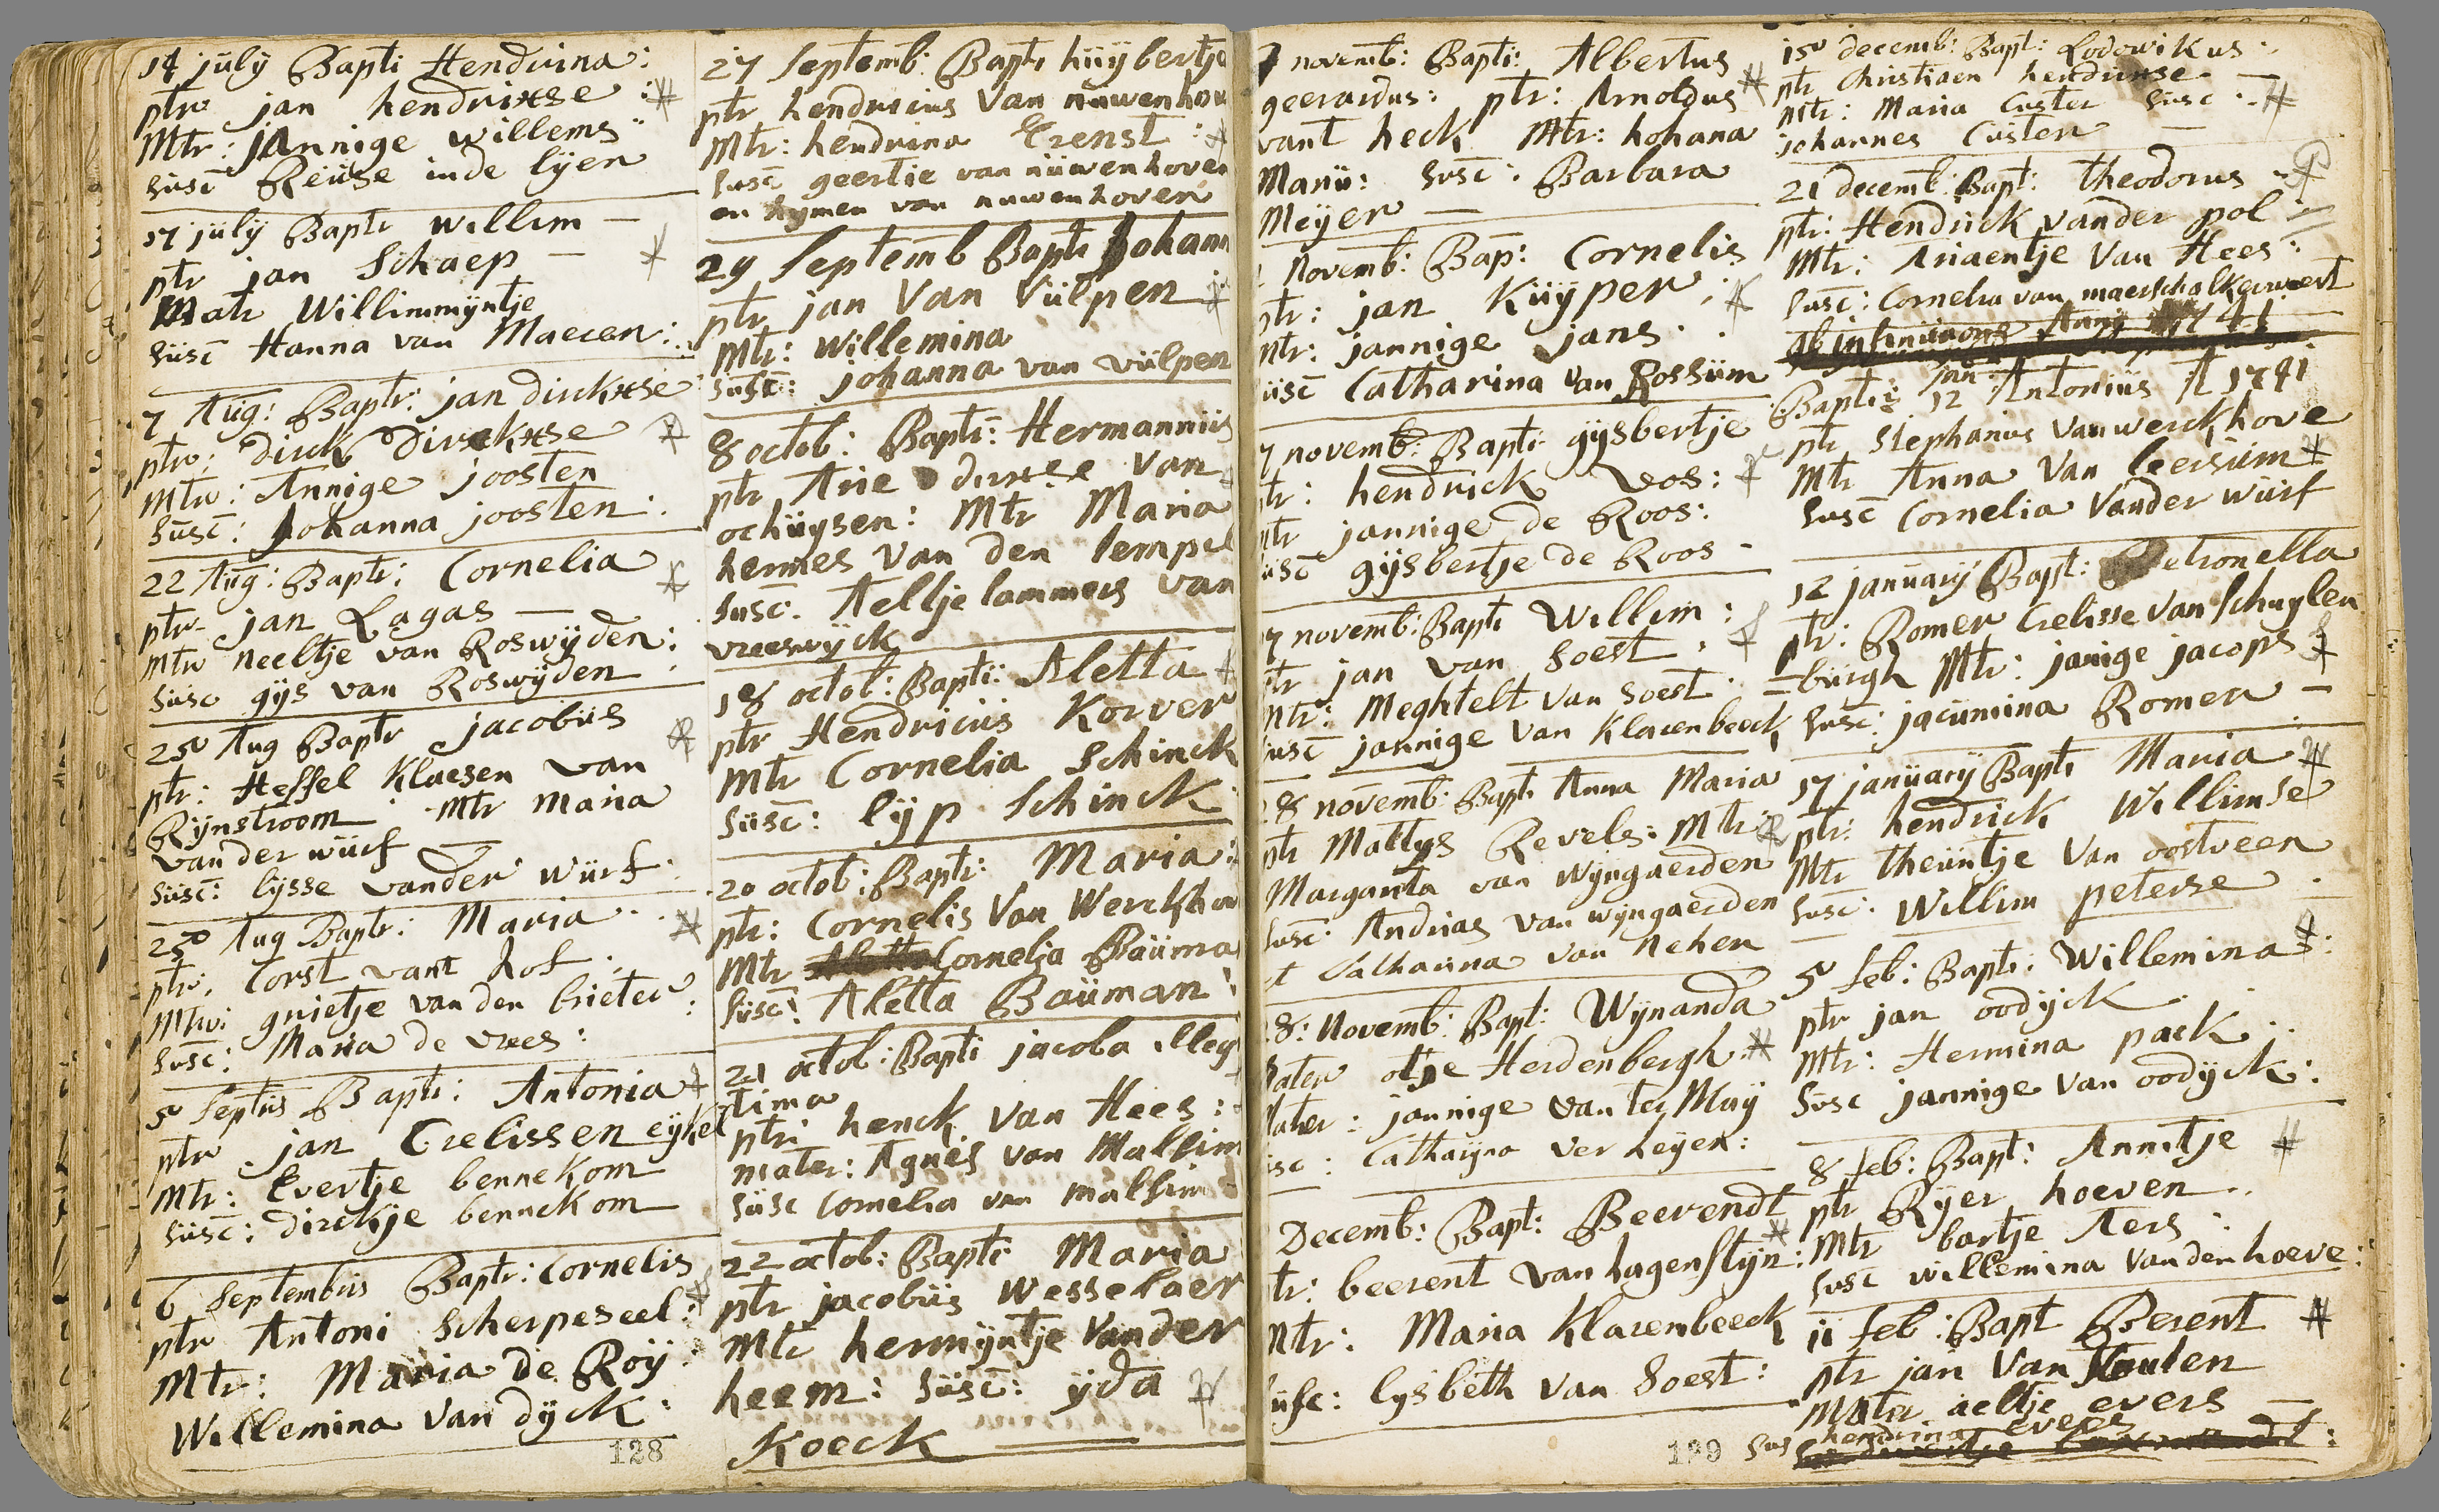 14 july Bapti Hendrina:
ptr jan hendrixse :
Mtr: jannige willems
susc Reijse inde lijen
17 july Baptr willem —
ptr jan Schaep —
Matr Willimmijntje
susc Hanna van Maeren:
7 Aug: Baptr: jan dirckxse
ptr: dirck Dirckxse
Mtr: Annige joosten
susc: johanna joosten :
22 Aug: Baptr: Cornelia
ptr jan Lagas —
Mtr neeltje van Roswijden:
susc gijs van Roswijden
25 Aug Baptr jacobus
ptr: Hessel Klaesen van
Rijnstroom Mtr Maria
van der wurf —
susc: lysse vander wurf.
25 Aug Baptr: Maria
ptr: Corst vant hof :
Mtr: grietje van den brieter
susc: Maria de vrees:
5 Septris Bapti: Antonia
ptr jan Crelissen eijkel
Mtr: Evertje bennekom
susc: dirckje bennekom
6 Septembris Baptr: Cornelis
ptr Antoni Scherpeseel:
Mtr: Maria de Roij
Willemina van dijck:
128
27 Septemb: Bapti huijbertje
ptr hendricius van nuwenhou
Mtr: hendrina Crenst :
susc geertie van nuwenhoven
en hijmen van nuwenhoven
29 Septemb Bapti Johann
ptr jan Van Vulpen
Mtr: Willemina
susc: johanna van vulpen
8 octob: Bapti: Hermannus
ptr Arie dirxse van
ochuijsen: Mtr Maria
hermes van den tempel
susc: Aeltje lammers van
vreeswijck
18 octob: Bapti: Aletta
ptr Hendricus Korver
Mtr Cornelia Schinck
susc: lijp Schinck
20 octob: Bapti: Maria:
ptr: Cornelis Van Werckhov
Mtr Cornelia Bauma
susc: Aletta Bauman
21 octob: Bapti jacoba illeg
tima
ptr: henck van Hees:
mater: Agnes van Mallim
susc Cornelia van mallim
22 octob: Bapti Maria
ptr jacobus Wesselaer
Mtr hermijntje Vander
heem: susc: ijda
Koeck
7 novemb: Bapti: Albertus
geerardus: ptr: Arnoldus
vant heck Mtr: hohana
Marii: susc: Barbara
Meijer —
Novemb: Bap: Cornelis
ptr: jan Kuijper :
Mtr: jannige jans.
susc Catharina van Rossum
7 novemb: Bapti gijsbertje
ptr: hendrick vos:
mtr jannige de Roos:
susc gijsbertje de Roos -
7 novemb: Bapti Willim:
ptr jan van Soest :
Mtr: Meghtelt van Soest.
susc jannige van Klarenbeeck
28 novemb: Bapti Anna Maria
ptr Mattys Revels: Mtr:
Margarita van wijngaerden
susc: Andrias van wijngaerden
et Catharina van Nehen
28: Novemb: Bapt: Wijnanda
Pater otje Herdenbergh
Mater: jannige van ter Maij
susc: Catharijna ver heijen:
Decemb: Bapt: Beerendt
ptr: beerent van hagenstijn:
Mtr: Maria Klarenbeeck
susc: lysbeth van Soest:
129
15 decemb: Bapt: Lodowikus
ptr Christiaen hendrixse —
Mtr: Maria Custer susc:
johannes Custer —
21 decemb: Bapt: theodorus
ptr: Hendrick vander pol
Mtr: Ariaentje Van Hees:
susc: Cornelia van maerschalkerweert
Anni 1741
jan
Bapti: 12 Antonius A 1741
ptr Stephanus van werckhove
Mtr Anna Van leersum
susc Cornelia Vander wurf
12 january Bapt: Petronella
ptr: Romer Crelisse van schuylen
=burgh Mtr: janige jacops
susc: jacumina Romer —
17 january Bapti Maria
ptr: hendrick Willimse
Mtr theuntje Van oostveen
susc. Willim peterse
5 feb: Bapti: Willemina:
ptr jan oodijck
Mtr: Hermina pack :
susc jannige van oodijck:
8 feb: Bapt: Annitje
ptr Rijer hoeven
Mtr bartje Aers :
susc willemina vanden hoeve:
11 feb: Bapt Berent
ptr jan Van Houten
Mater aeltje evers —
sus hendrina evers